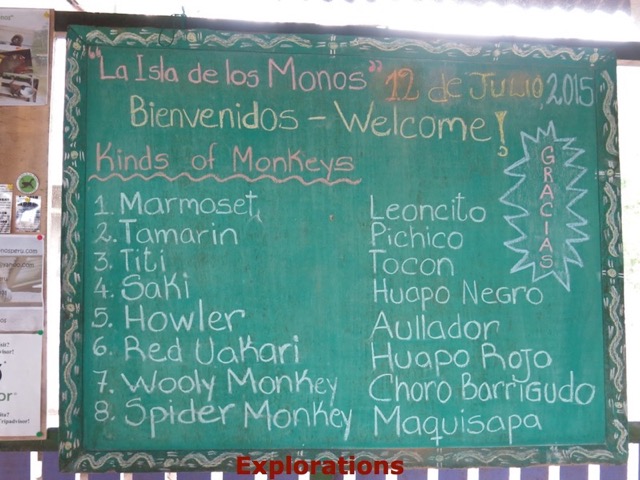 "La Isla de los Monos" 12 de Julio, 2015
Bienvenidos - Welcome!
Kinds of Monkeys
GRACIAS
1. Marmoset Leoncito
2. Tamarin Pichico
3. Titi Tocon
4. Saki Huapo Negro
5. Howler Aullador
6. Red Uakari Huapo Rojo
7. Wooly Monkey Choro Barrigudo
8. Spider Monkey Maquisapa
Explorations